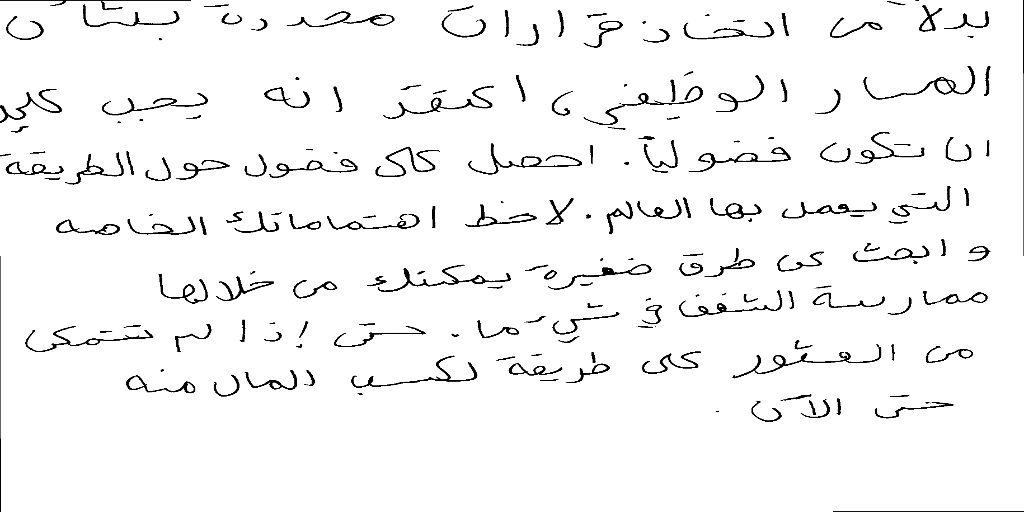 بدلا من اتخاذ قرارات محددة بشأن
المسار الوظيفي، اعتقد انه يجب عليك
ان تكون فضولياً. احصل على فضول حول الطريقة
التي يعمل بها العالم. لاحظ اهتماماتك الخاصه
و ابحث عن طرق صغيرة يمكنك من خلالها
ممارسة الشغف في شيء ما. حتى إذا لم تتمكن
من العثور على طريقة لكسب المال منه
حتى الآن.